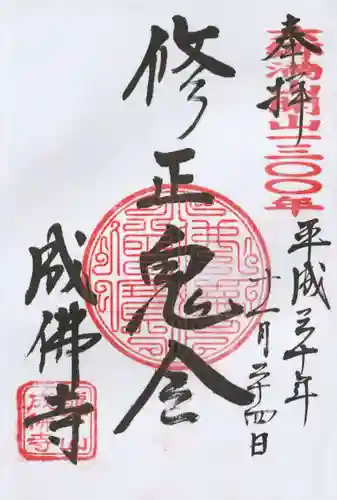 奉拝
六郷満開山一三〇〇年
平成三十年
十一月二十四日
修正鬼会
成佛寺